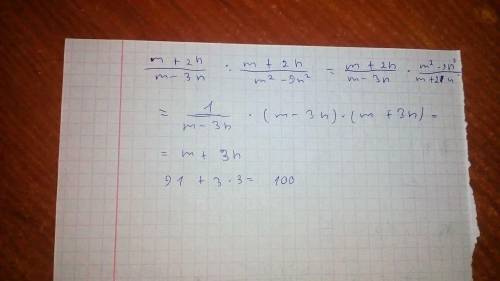 (m + 2n)/(m - 3n) : (m + 2n)/(m² - 9n²) = (m + 2n)/(m - 3n) · (m² - 9n²)/(m + 2n)
= 1/(m - 3n) · (m - 3n) · (m + 3n) =
= m + 3n
91 + 3 · 3 = 100